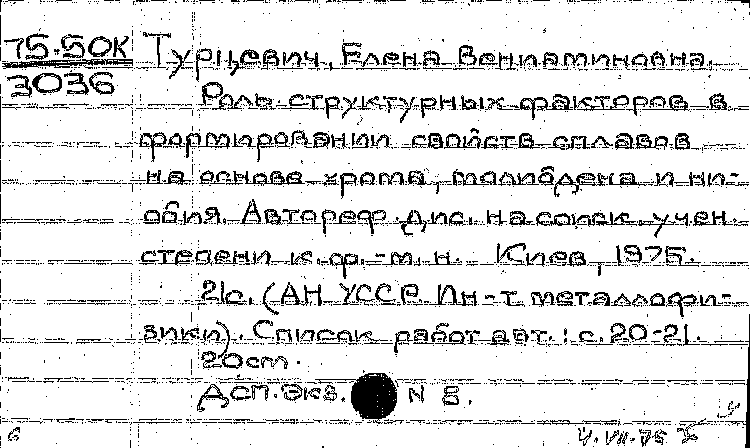 75-50К
3036
Турцевич, Елена Вениаминовна.
Роль структурных факторов в
формировании свойств сплавов
на основе хрома, молибдена и ни-
обия. Автореф. дис. на соиск. учен.
степени к. ф.-м. н. Киев, 1975.
21с. (АН УССР. Ин-т металлофи-
зики). Список работ авт.: с. 20-21.
20см.
ДСП. Экз. N 8.
6
4.VII.75